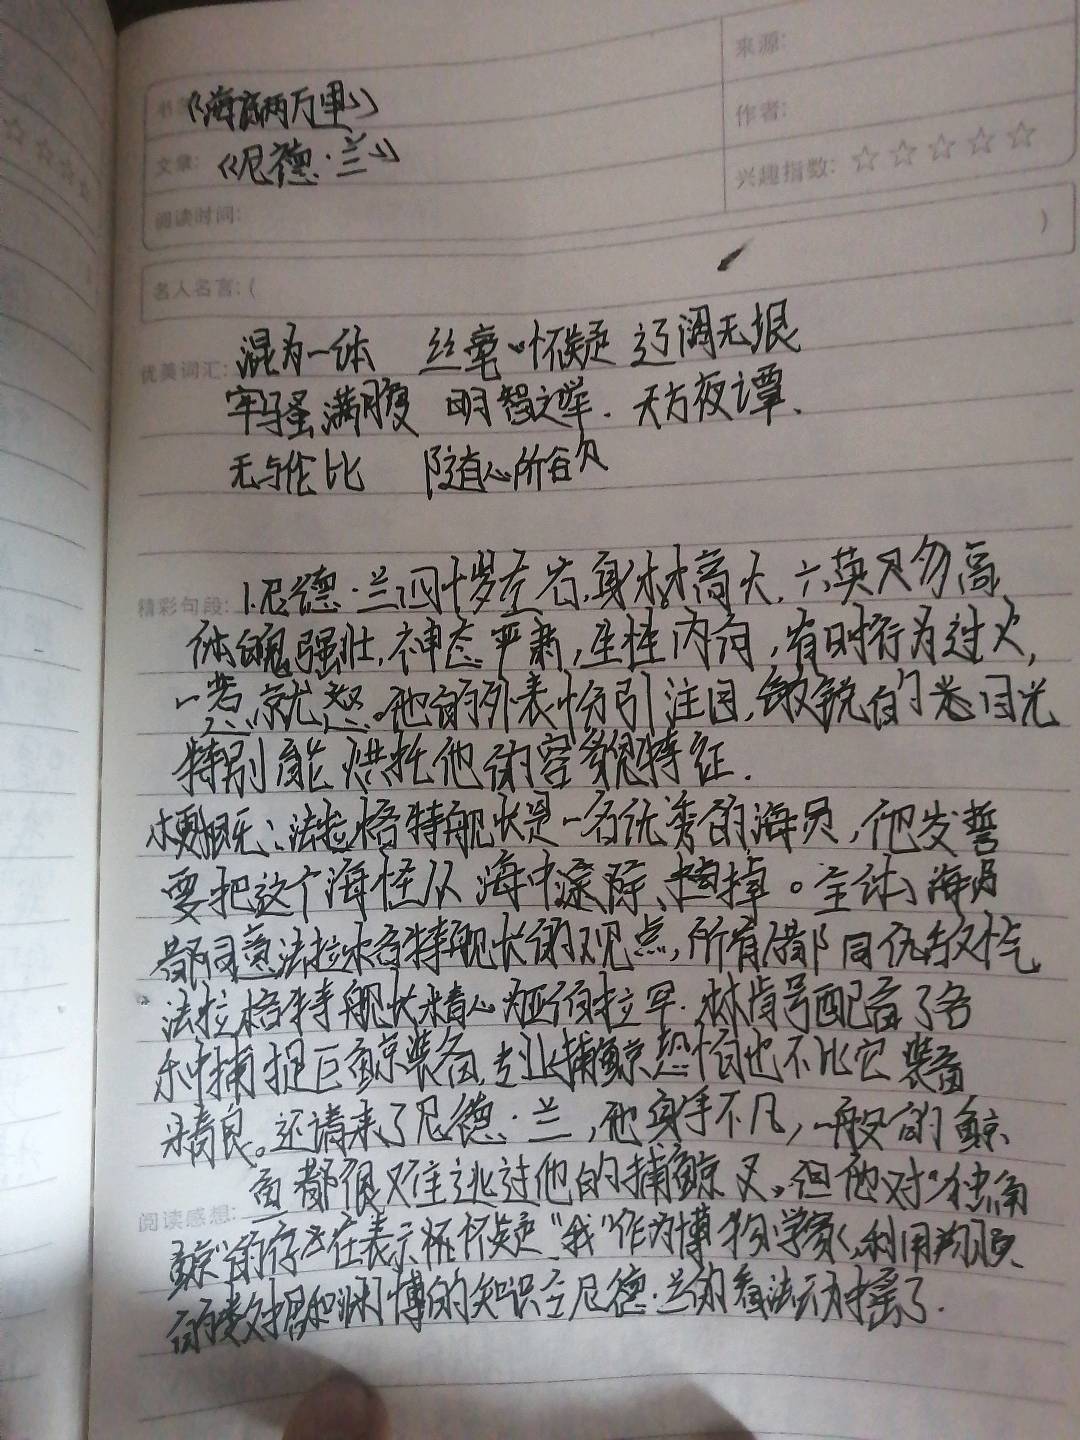 来源:
《海底两万里》
作者:
文章: 《尼德·兰》
兴趣指数: ☆☆☆☆☆
阅读时间:
)
名人名言: (
优美词汇: 混为一体 丝毫 怀疑 辽阔无垠
牢骚满腹 明智之举. 天方夜谭、
无与伦比 随心所欲
精彩句段: 1.尼德·兰四十岁左右,身材高大,六英尺勿高
体魄强壮,神态严肃,生性内向,有时行为过火,
一惹就怒。他的外表份引注目,敏锐的 目光
特别能烘托他的容貌特征.
梗概:法拉格特舰长是一名优秀的海员,他发誓
要把这个海怪从海中除掉。全体海员
都同意法拉格特舰长的观点,所有人都同仇敌忾
法拉格特舰长精心 亚伯拉罕.林肯号配备了各
种捕捉巨鲸装备,专业捕鲸恐怕也不比它装备
精良。还请来了尼德·兰,他身手不凡,一般的鲸
鱼都很难逃过他的捕鲸叉。但他对"独角
阅读感想:
鲸"的存在表示怀疑"我"作为博物学家,利用
的数据和渊博的知识令尼德·兰的看法动摇了.